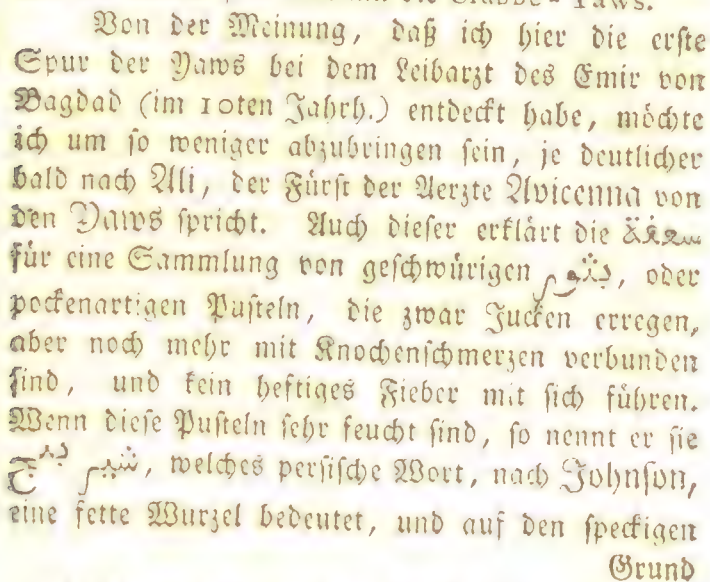 Yaws.
Von der Meinung, daß ich hier die erste
Spur der Yaws bei dem Leibarzt des Emir von
Bagdad (im 10ten Jahrh.) entdeckt habe, möchte
ich um so weniger abzubringen sein, je deutlicher
bald nach Ali, der Fürst der Aerzte Avicenna von
den Yaws spricht. Auch dieser erklärt die سعفة
für eine Sammlung von geschwürigen, oder
pockenartigen Pusteln, die zwar Jucken erregen,
aber noch mehr mit Knochenschmerzen verbunden
sind, und kein heftiges Fieber mit sich führen.
Wenn diese Pusteln sehr feucht sind, so nennt er sie
, welches persische Wort, nach Johnson,
eine fette Wurzel bedeutet, und auf den speckigen
Grund